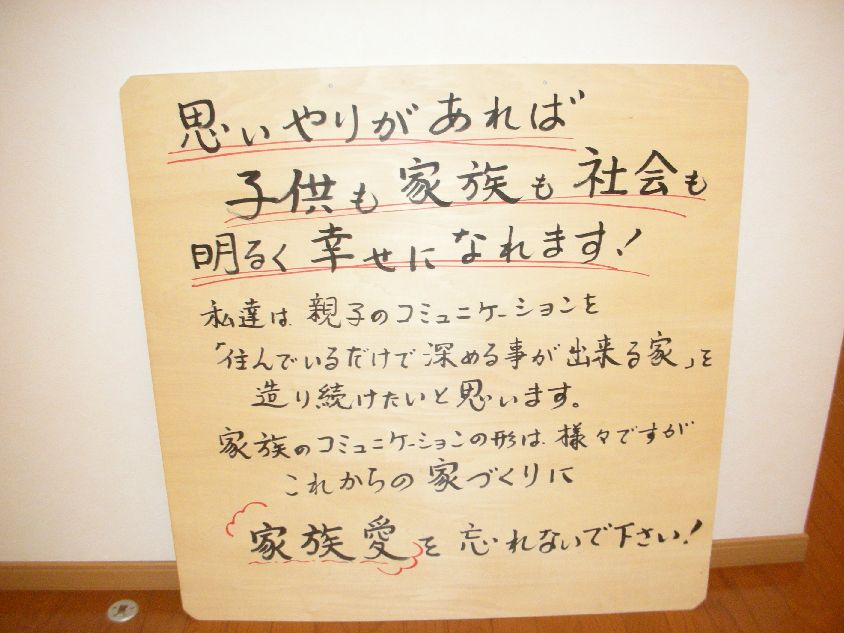 思いやりがあれば
子供も家族も社会も
明るく幸せになれます!
私達は親子のコミュニケーションを
「住んでいるだけで深める事が出来る家」を
造り続けたいと思います。
家族のコミュニケーションの形は、様々ですが
これからの家づくりに
家族愛を忘れないで下さい!